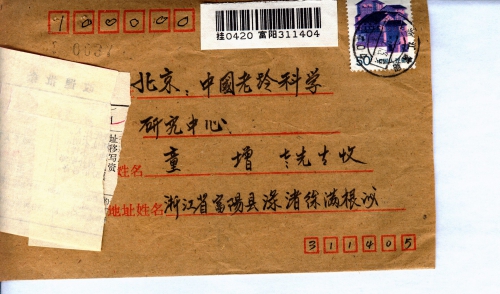 100000
桂0420 富阳311404
50
北京:中國老龄科学
研究中心
姓名 董 增 先生收
址移写资
地址姓名 浙江省富陽县渌渚练满根
311405